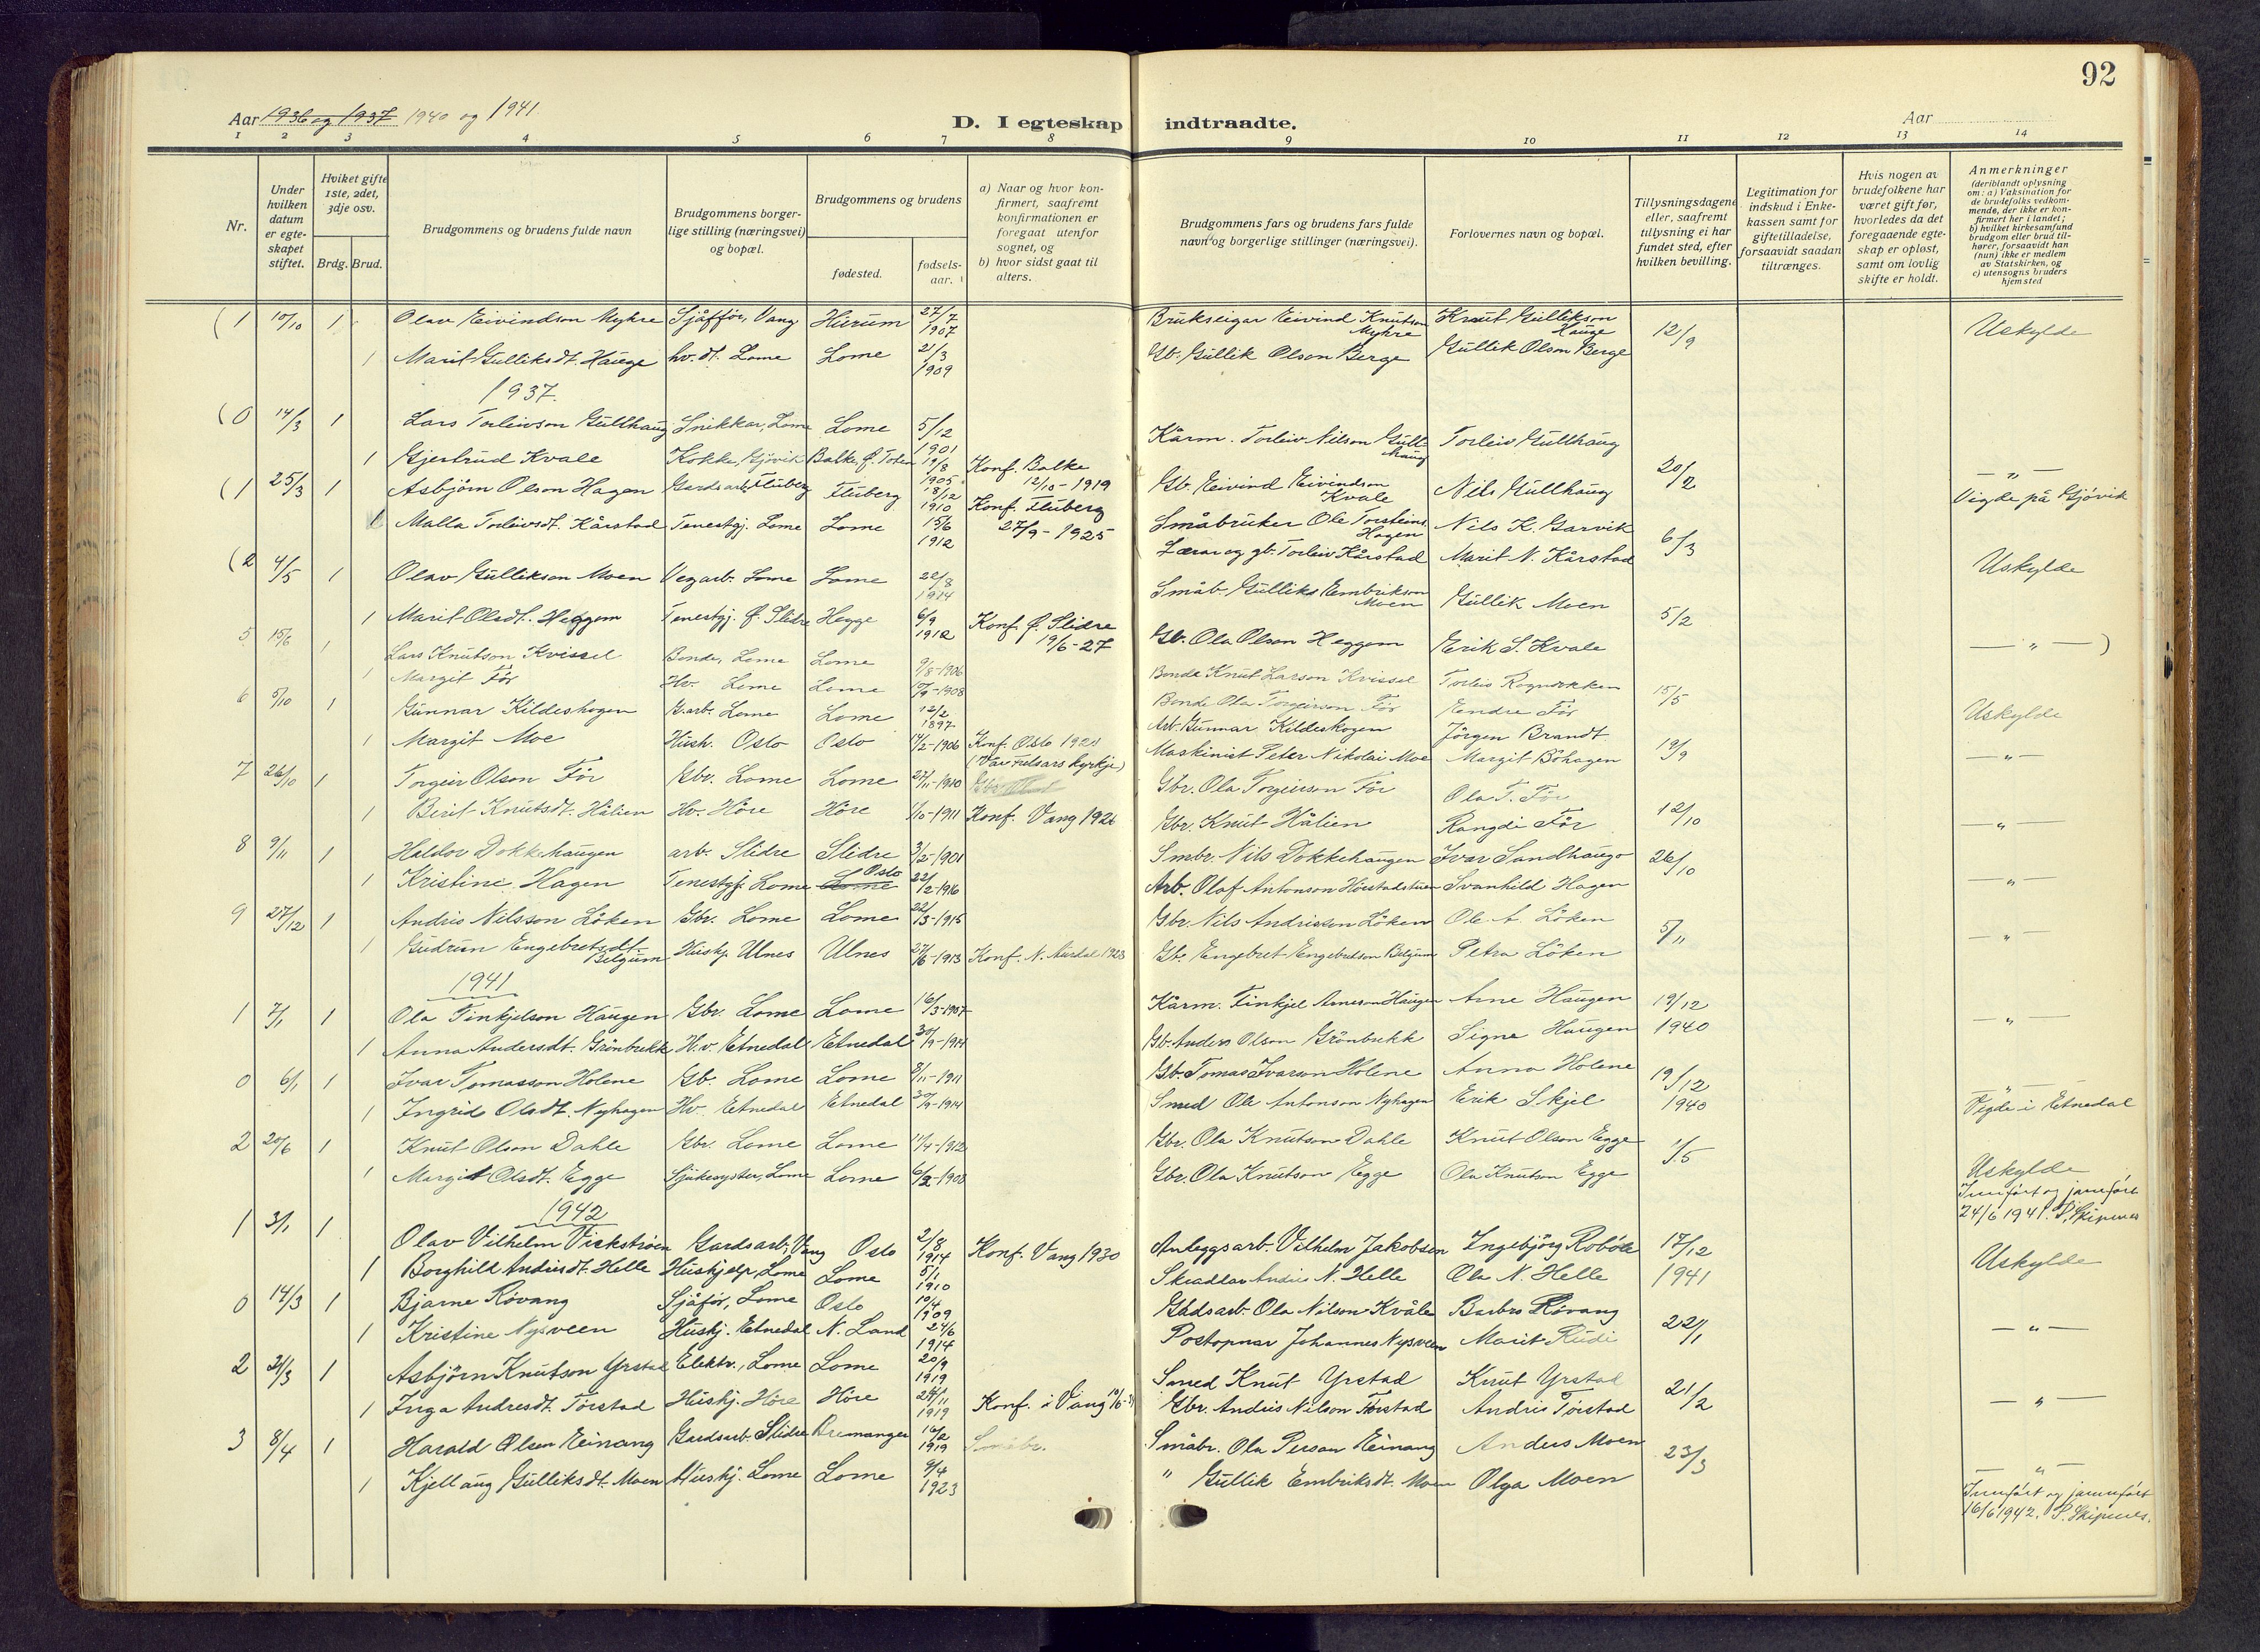 92
Aar 1936 og 1937 1940 og 1941
D. I egteskap indtraadte.
Aar
1 2 3 4 5 6 7 8 9 10 11 12 13 14
Nr.
Under hvilken datum er egteskapet stiftet.
Hviket gifte 1ste, 2det, 3dje osv.
Brdg. Brud.
Brudgommens og brudens fulde navn
Brudgommens borgerlige stilling (næringsvei) og bopæl.
Brudgommens og brudens
fødested.
fødselsaar.
a) Naar og hvor konfirmert, saafremt konfirmationen er foregaat utenfor sognet, og
b) hvor sidst gaat til alters.
Brudgommens fars og brudens fars fulde navn og borgerlige stillinger (næringsvei).
Forlovernes navn og bopæl.
Tillysningsdagene eller, saafremt tillysning ei har fundet sted, efter hvilken bevilling.
Legitimation for indskud i Enkekassen samt for giftetilladelse, forsaavidt saadan tiltrænges.
Hvis nogen av brudefolkene har været gift før, hvorledes da det foregaaende egteskap er opløst, samt om lovlig skifte er holdt.
Anmerkninger
(deriblandt oplysning om: a) Vaksination for de brudefolks vedkommende, der ikke er konfirmert her i landet; b) hvilket kirkesamfund brudgom eller brud tilhører, forsaavidt han (hun) ikke er medlem av Statskirken, og c) utensogns bruders hjemsted
(1 10/10 1 Olav Eivindson Myhre Sjåffør, Vang Hurum 27/7 1907 Brukseigar Eivind Knutson Myhre Knut Gullikson Hauge 12/9 Uskylde
1 Marit Gulliksdt. Hauge hv. dt. Lome Lome 21/3 1909 Gb. Gullik Olson Berge Gullik Olson Berge
1937.
(0 14/3 1 Lars Torleivson Gullhaug Snikkar, Lome Lome 5/12 1901 Kårm. Torleiv Nilson Gullhaug Torleiv Gullhaug 20/2 — " —
1 Gjertrud Kvale Kokke, Gjøvik Balke, Ø. Toten 19/8 1905 Konf. Balke 12/10 - 1919 Gb. Eivind Eivindson Kvale Nils Gullhaug Vigde på Gjøvik
(1 25/3 1 Asbjørn Olson Hagen Gardsarb. Fluberg Fluberg 18/12 1910 Konf. Fluberg 27/9 - 1925 Småbruker Ole Torsteins. Hagen Nils K. Garvik 6/3
1 Malla Torleivsdt. Kårstad Tenestgj. Lome Lome 15/6 1912 Lærar og gb. Torleiv Kårstad Marit N. Kårstad Uskylde
(2 4/5 1 Olav Gullikson Moen Vegarb. Lome Lome 22/8 1914 Småb. Gulliks Embrikson Moen Gullik Moen 5/2
1 Marit Olsdt. Heggem Tenestgj. Ø. Slidre Hegge 6/9 1912 Konf. Ø. Slidre 19/6 - 27 Gb. Ola Olson Heggem Erik S. Kvale — " — )
5 15/6 1 Lars Knutson Kvissel Bonde, Lome Lome 9/8-1906 Bonde Knut Larson Kvissel Torleiv Rogndokken 15/5 Uskylde
1 Margit Før Hv. Lome Lome -1908 Bonde Ola Torgeirson Før Endre Før
6 5/10 1 Gunnar Kildeskogen G.arb. Lome Lome 12/2 1897 Arb. Gunnar Kildeskogen Jörgen Brandt 19/9 — " —
1 Margit Moe Hush. Oslo Oslo 14/2-1906 Konf. Oslo 1921 (Vår Frelsars kyrkje) Maskinist Peter Nikolai Moe Margit Böhagen
7 26/10 1 Torgeir Olson Før Gbr. Lome Lome 27/11-1910 Gbr. Ola Torgeirson Før Ola T. Før 12/10 — " —
1 Berit Knutsdt. Hålien Hv. Höre Höre 1/10-1911 Konf. Vang 1926 Gbr. Knut Hålien Rangdi Før
8 9/11 1 Haldor Dokkehaugen arb. Slidre Slidre 3/2-1901 Smbr. Nils Dokkehaugen Ivar Sandhaugo 26/10 — " —
1 Kristine Hagen Tenestgj. Lome Lome Oslo 22/2-1916 Arb. Olaf Antonson Svanhild Hagen
9 27/12 1 Andris Nilsson Löken Gbr. Lome Lome 22/3-1915 Gbr. Nils Andrisson Löken Ole A. Löken 5/11 — " —
1 Gudrun Engebretsdt. Belgum Huskj. Ulnes Ulnes 27/6-1913 Konf. N. Aurdal 1928 Gb. Engebret Engebretson Belgum Petra Löken
1941
1 7/1 1 Ola Finkjelson Haugen Gbr. Lome Lome 16/3-1907 Kårm. Finkjel Arneson Haugen Arne Haugen 19/12 1940 — " —
1 Anna Andersdt. Grönbrekk H.v. Etnedal Etnedal 30/9-1914 Gb. Anders Olson Grönbrekk Signe Haugen
0 6/1 1 Ivar Tomasson Holene Gb. Lome Lome 8/11-1911 Gb. Tomas Ivarson Holene Anna Holene 19/12 1940 — " —
1 Ingrid Olsdt. Nyhagen Hv. Etnedal Etnedal 30/9-1914 Smed Ole Antonson Nyhagen Erik Skjel Vigde i Etnedal
2 20/6 1 Knut Olson Dahle Gbr. Lome Lome 11/4-1912 Gbr. Ola Knutson Dahle Knut Olson Egge 1/5
1 Margit Olsdt. Egge Sjukesyster, Lome Lome 6/2-1908 Gbr. Ola Knutson Egge Ola Knutson Egge Uskylde
Innført og jamført 24/6 1941. P. Skipenes
1942
1 3/1 1 Olav Vilhelm Vickstrøm Gardsarb, Vang Oslo 2/8 1914 Konf. Vang 1930 Anleggsarb. Vilhelm Jakobsen Ingebjörg Robøle 17/12 1941 Uskylde
1 Borghild Andrisdt. Helle Huskjelp, Lome Lome 5/1 1910 Skradlar Andris N. Helle Ola N. Helle
0 14/3 1 Bjarne Røvang Sjåfør, Lome Oslo 10/4 1909 Gardsarb. Ola Nilson Kvåle Barbro Røvang 22/1 — " —
1 Kristine Nysveen Huskj. Etnedal N. Land 24/6 1914 Postopnar Johannes Nysveen Marit Rudi
2 21/3 1 Asbjörn Knutson Yrstad Elektr., Lome Lome 20/9 1919 Smed Knut Yrstad Knut Yrstad 21/2 — " —
1 Inga Andresdt. Tørstad Huskj. Höre Höre 28/11 1919 Konf. i Vang Gbr. Andris Nilson Tørstad Andris Tørstad
3 8/4 1 Harald Olsen Einang Gardsarb. Slidre Bremanger 16/2 1919 Småbr. Småbr. Ola Person Einang Anders Moen 23/3 — " —
1 Kjellaug Gulliksdt. Moen Huskj. Lome Lome 9/4 1923 " Gullik Embriksdt. Moen Olga Moen
Innført og jamført 16/6 1942. P. Skipenes.